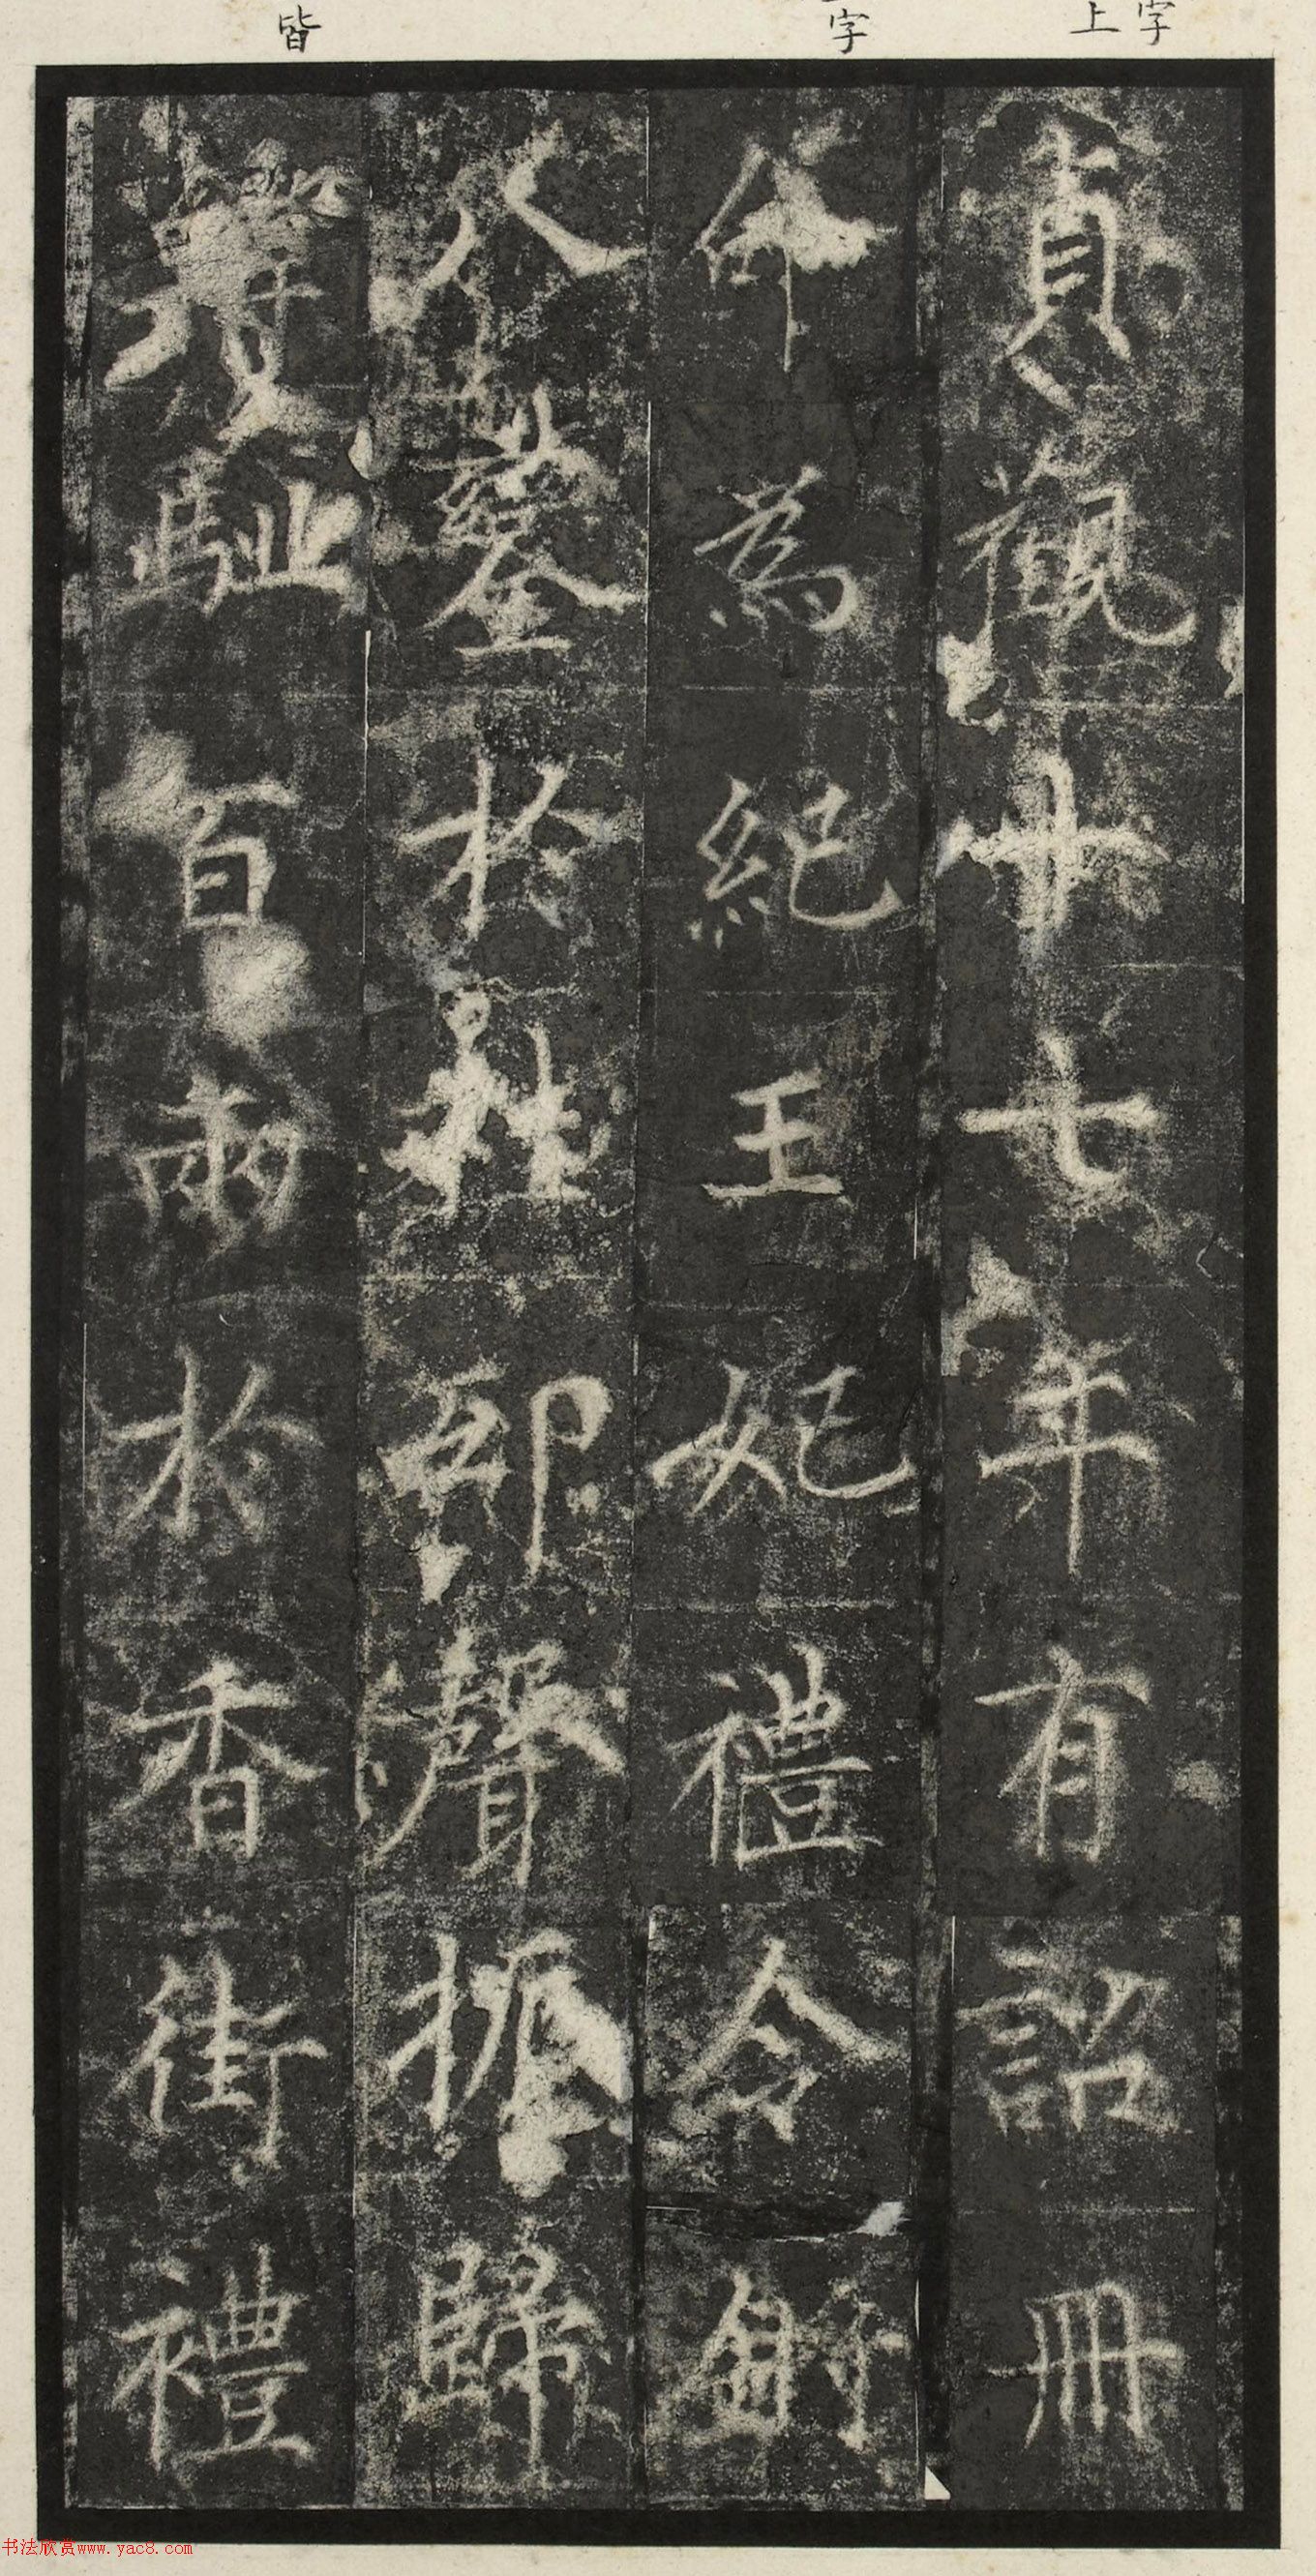 上字
字
皆
貞觀十七年有詔冊
命為紀王妃禮令
八鑾於桂邸聲振歸
馳百兩於香街禮
书法欣赏www.yac8.com